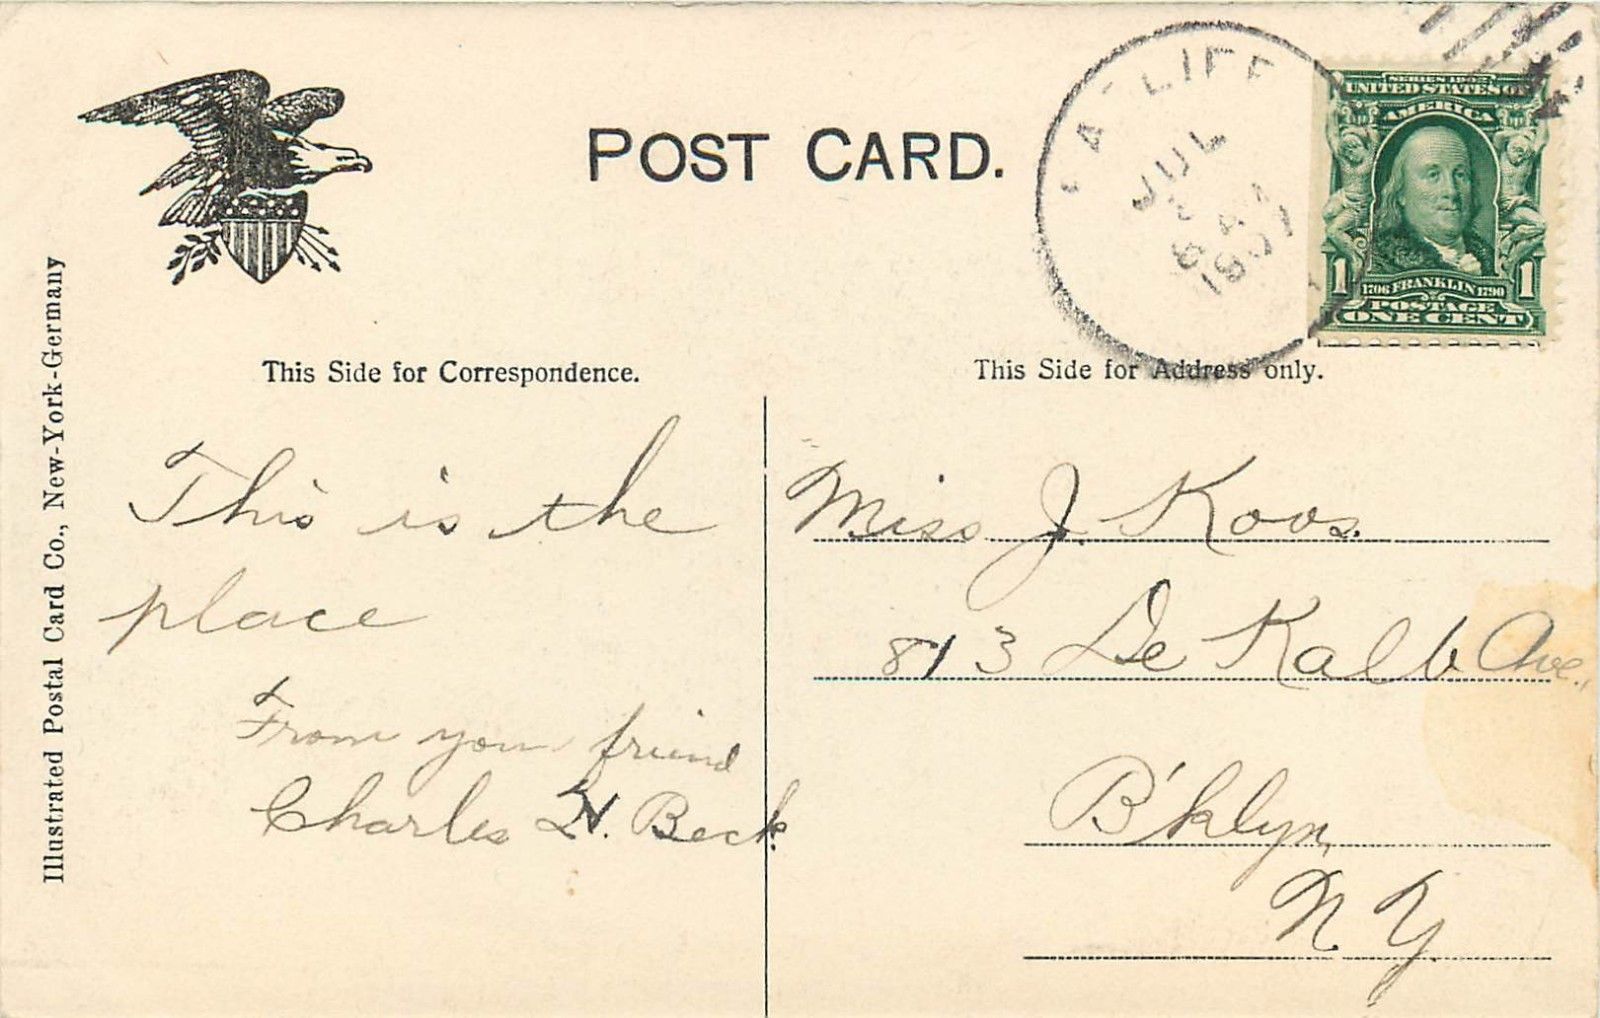 POST CARD.
JUL
1907
SERIES 1902
UNITED STATES OF
AMERICA
1 1706 FRANKLIN 1790 1
POSTAGE
ONE CENT
This Side for Correspondence.
This Side for Address only.
Illustrated Postal Card Co., New-York-Germany
This is the
place
From you friend
Charles H. Beck.
Miss J. Koos.
813 De Kalb Ave.,
B'klyn,
N Y